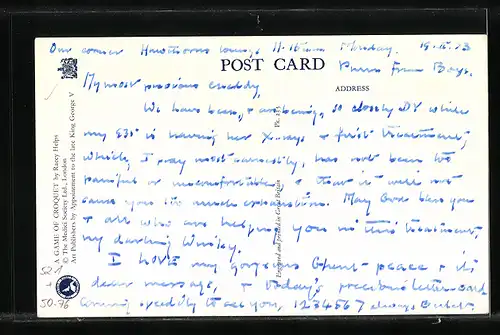 Our corner Hawthorns lounge 11.15am Monday. 19.
POST CARD
from Boys.
ADDRESS
My most precious cuddly,
We have been, & are being, so closely DV while
my is having her X-rays & first treatment,
which, I pray most earnestly, has not been too
painful or uncomfortable & that it will not
cause you too much exhaustion. May God bless you
& all who are helping you in this treatment,
my darling
I have my gorgeous & its
dear message, & today's precious letter card
coming speedily to you, 1234567 always
A GAME OF CROQUET by Racey Helps
© The Medici Society Ltd., London
Art Publishers by Appointment to the late King George V
Pk. 213
Engraved and printed in Great Britain
+
50.76